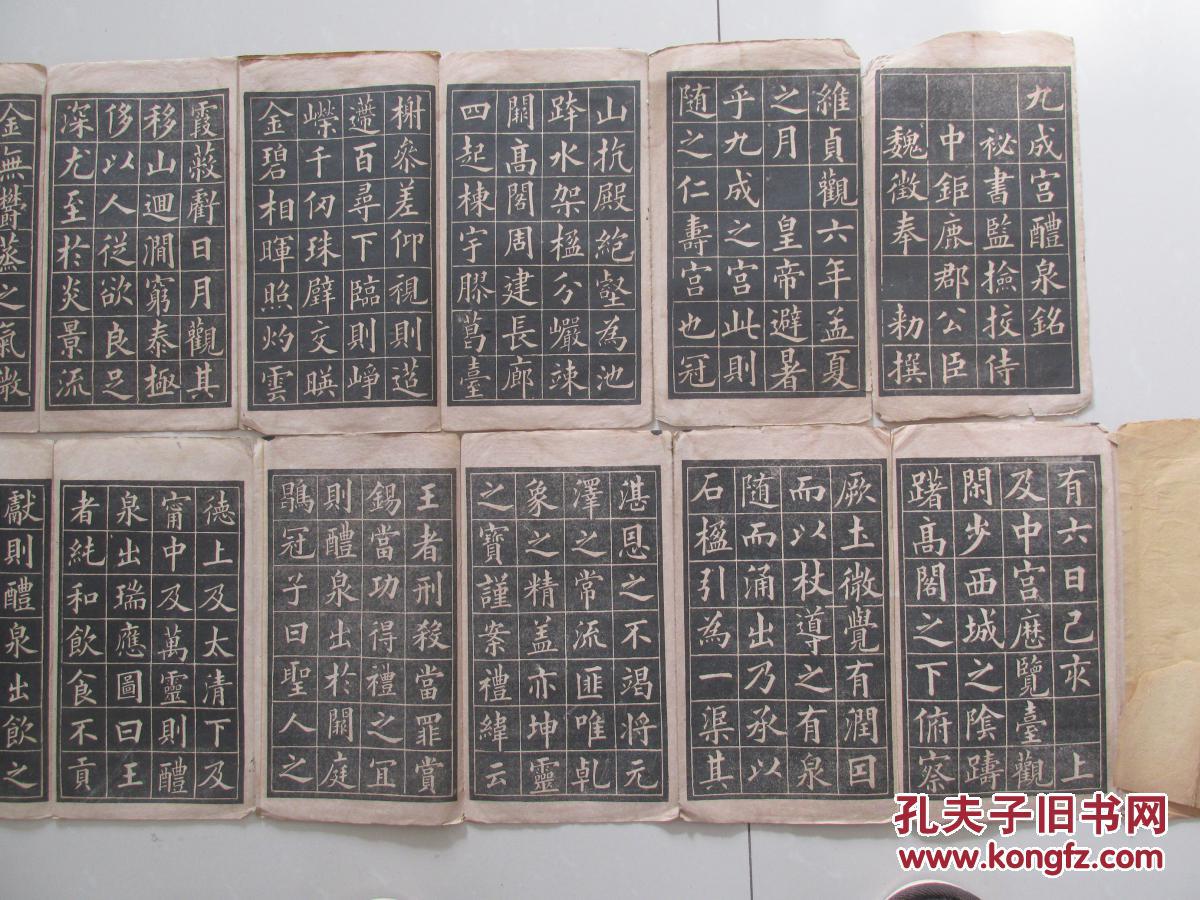 九成宫醴泉銘
秘書監撿挍侍
中鉅鹿郡公臣
魏徵奉 勑撰
維貞觀六年孟夏
之月 皇帝避暑
乎九成之宫此則
随之仁壽宫也冠
山抗殿絶壑為池
跨水架楹分巖竦
闕高閣周建長廊
四起棟宇膠葛臺
榭叅差仰視則迢
遰百尋下臨則崢
嶸千仞珠璧交暎
金碧相暉照灼雲
霞蔽虧日月觀其
移山迴澗窮泰極
侈以人従欲良足
深尤至於炎景流
金無鬱蒸之氣微
有六日己亥 上
及中宫歴覽臺觀
閑步西城之陰躊
躇高閣之下俯察
厥土微覺有潤因
而以杖導之有泉
随而涌出乃承以
石楹引為一渠其
湛恩之不竭將元
澤之常流匪唯乹
象之精盖亦坤靈
之寶謹案禮緯云
王者刑殺當罪賞
錫當功得禮之冝
則醴泉出於闕庭
鶡冠子曰聖人之
徳上及太清下及
甯中及萬靈則醴
泉出瑞應圖曰王
者純和飲食不貢
獻則醴泉出飲之
孔夫子旧书网
www.kongfz.com